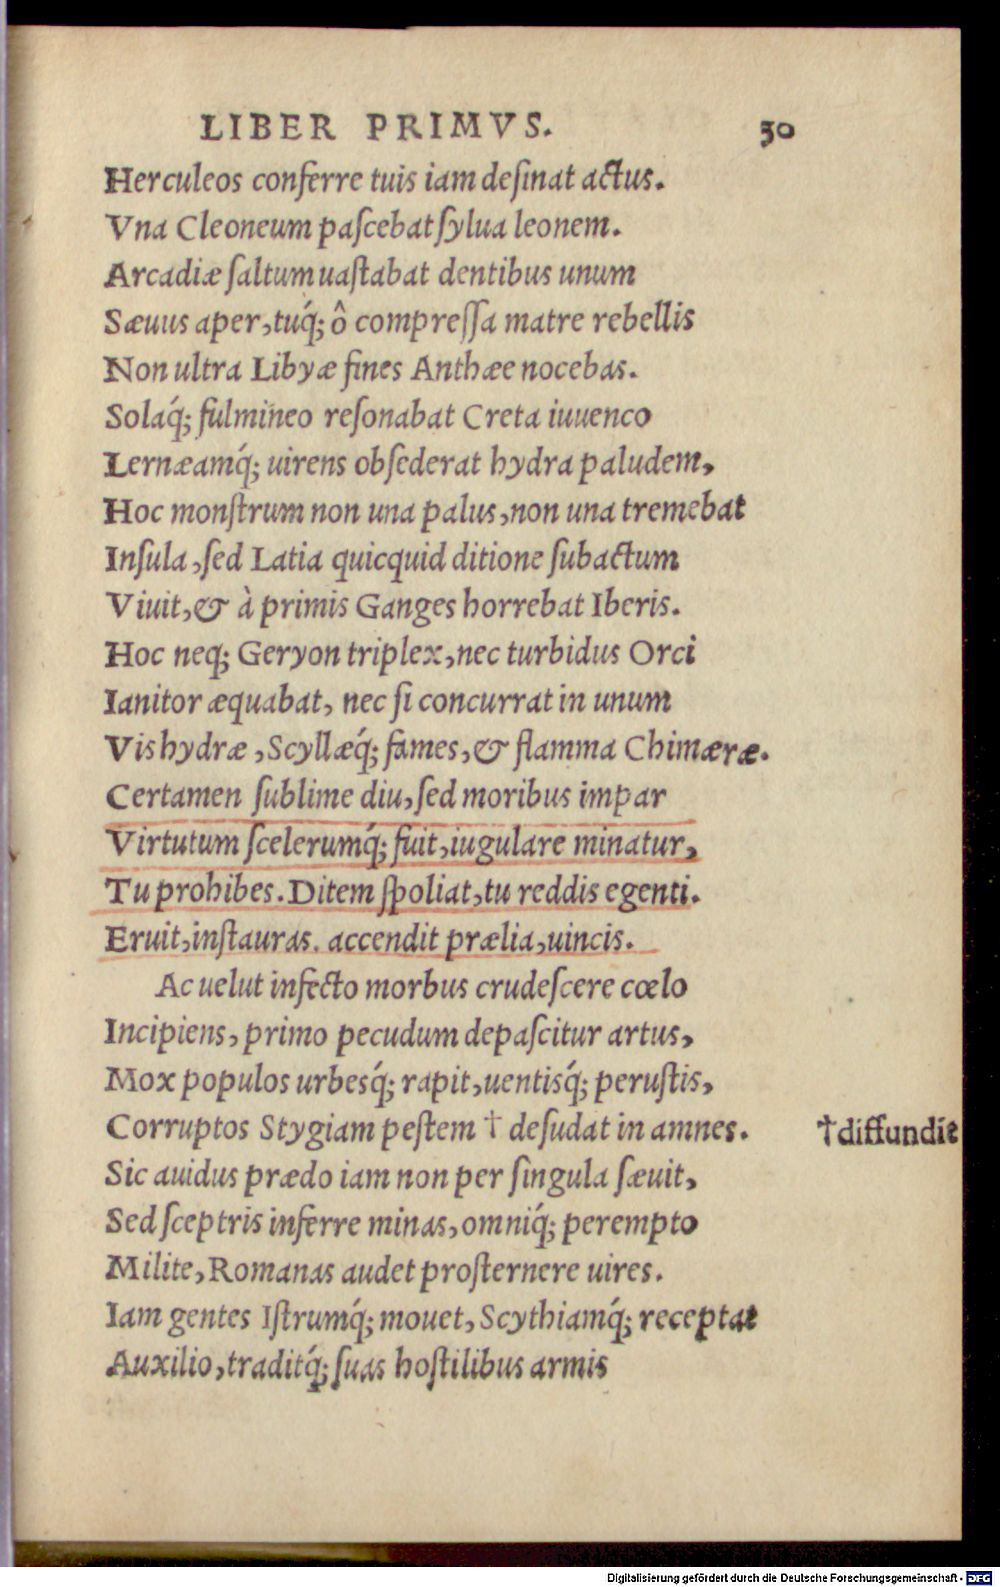 LIBER PRIMVS. 30
Herculeos conferre tuis iam deſinat actus.
Vna Cleoneum paſcebat ſylua leonem.
Arcadiæ ſaltum uaſtabat dentibus unum
Sæuus aper, tuq́; ô compreſſa matre rebellis
Non ultra Libyæ fines Anthæe nocebas.
Solaq́; fulmineo reſonabat Creta iuuenco
Lernæamq́; uirens obſederat hydra paludem,
Hoc monſtrum non una palus, non una tremebat
Inſula, ſed Latia quicquid ditione ſubactum
Viuit, & à primis Ganges horrebat Iberis.
Hoc neq; Geryon triplex, nec turbidus Orci
Ianitor æquabat, nec ſi concurrat in unum
Vis hydræ, Scyllæq́; fames, & flamma Chimæræ.
Certamen ſublime diu, ſed moribus impar
Virtutum ſcelerumq́; fuit, iugulare minatur,
Tu prohibes. Ditem ſpoliat, tu reddis egenti.
Eruit, inſtauras. accendit prælia, uincis.
Ac uelut infecto morbus crudeſcere cœlo
Incipiens, primo pecudum depaſcitur artus,
Mox populos urbesq́; rapit, uentisq́; peruſtis,
Corruptos Stygiam peſtem † deſudat in amnes. †diffundit
Sic auidus prædo iam non per ſingula ſæuit,
Sed ſceptris inferre minas, omniq́; perempto
Milite, Romanas audet proſternere uires.
Iam gentes Iſtrumq́; mouet, Scythiamq́; receptat
Auxilio, traditq́; ſuas hoſtilibus armis
Digitalisierung gefördert durch die Deutsche Forschungsgemeinschaft - DFG